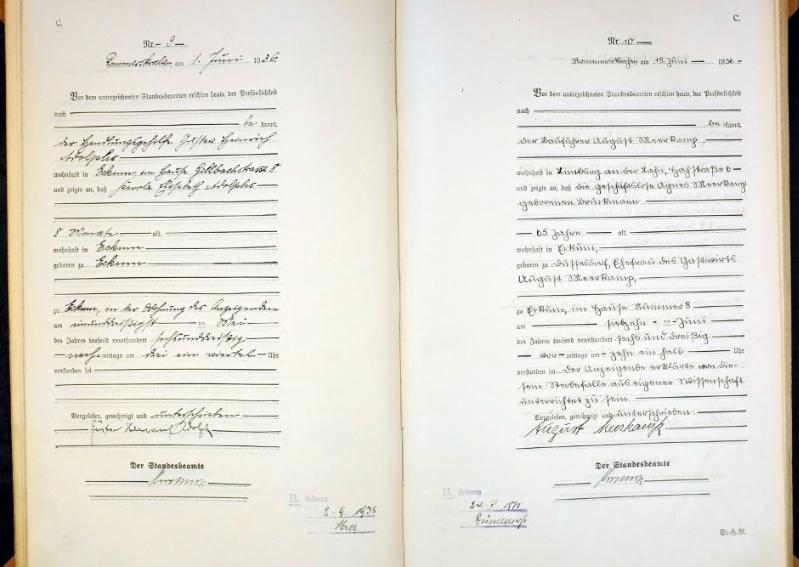 C.
Nr. 9
Rommerskirchen am 1. Juni 1936
Vor dem unterzeichneten Standesbeamten erschien heute, der Persönlichkeit
nach
be kannt,
der Handlungsgehilfe Gustav Heinrich
Adolphs
wohnhaft in Eckum, im Hause Gillbachstraße 8
und zeigte an, daß Karola Elisabeth Adolphs
8 Monate alt
wohnhaft in Eckum
geboren zu Eckum
zu Eckum, in der Wohnung des Anzeigenden
am einunddreißigst en Mai
des Jahres tausend neunhundert sechsunddreißig
nach mittags um drei ein viertel Uhr
verstorben sei
Vorgelesen, genehmigt und unterschrieben
Gustav Heinrich Adolphs
Der Standesbeamte
H. Geboren
2. 9. 1935
C.
Nr. 10
Rommerskirchen am 18. Juni 1936
Vor dem unterzeichneten Standesbeamten erschien heute, der Persönlichkeit
nach
be kannt,
der Bauführer August Meerkamp,
wohnhaft in Limburg an der Lahn,
und zeigte an, daß die geschäftslose Agnes Meerkamp
geborenen Brückmann
65 Jahre alt
wohnhaft in Eckum,
geboren zu Düsseldorf, Ehefrau des Gastwirts
August Meerkamp,
zu Eckum, im Hause Nummer 8
am siebzehn ten Juni
des Jahres tausend neunhundert sechs und dreißig
vor mittags um zehn ein halb Uhr
verstorben sei Der Anzeigende erklärte von die-
sem Sterbefalle aus eigener Wissenschaft
unterrichtet zu sein
Vorgelesen, genehmigt und unterschrieben:
August Meerkamp
Der Standesbeamte
H. Geboren
Düsseldorf